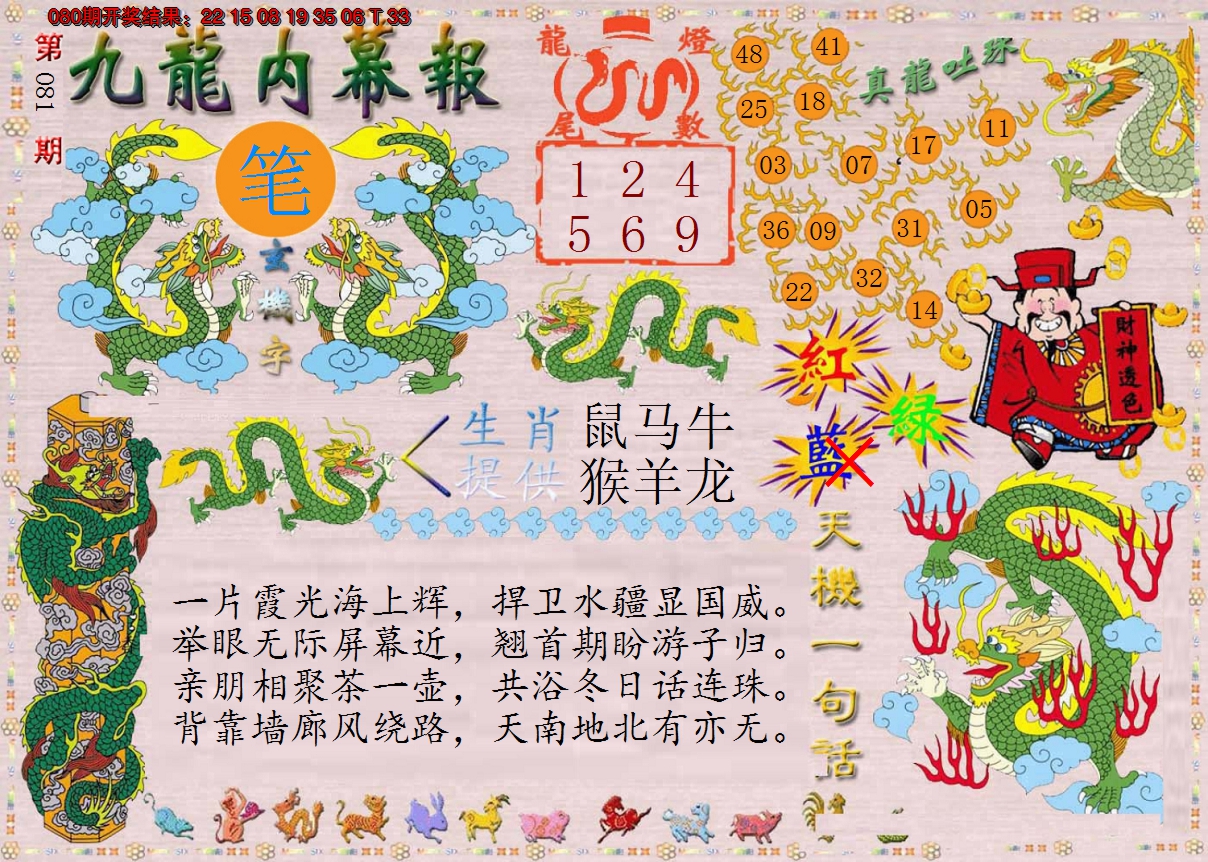 080期开奖结果：22 15 08 19 35 06 T 33
第081期
九龍内幕報
笔
玄機字
龍燈
尾數
1 2 4
5 6 9
真龍吐珠
48 41
25 18
03 07 17 11
36 09 31 05
22 32 14
紅
綠
藍
財神透色
生肖提供
鼠马牛
猴羊龙
天機一句話
一片霞光海上辉，捍卫水疆显国威。
举眼无际屏幕近，翘首期盼游子归。
亲朋相聚茶一壶，共浴冬日话连珠。
背靠墙廊风绕路，天南地北有亦无。